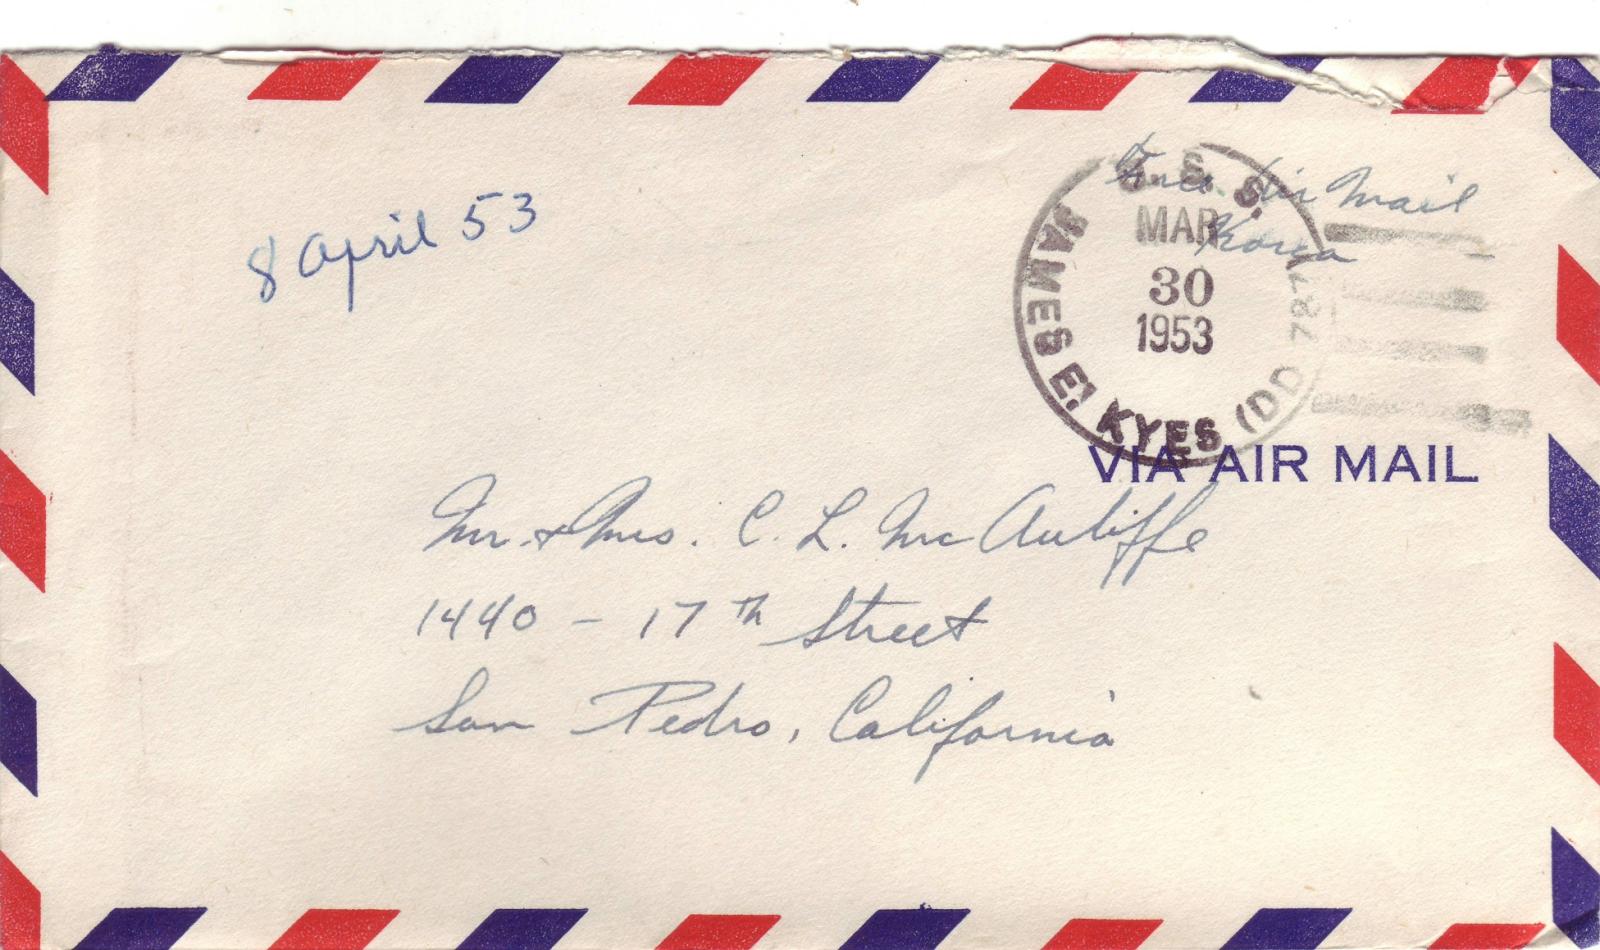 Free Air Mail
Korea
U.S.S. JAMES E. KYES (DD 787)
MAR
30
1953
8 April 53
VIA AIR MAIL
Mr. & Mrs. C. L. McAuliffe
1440 - 17th Street
San Pedro, California